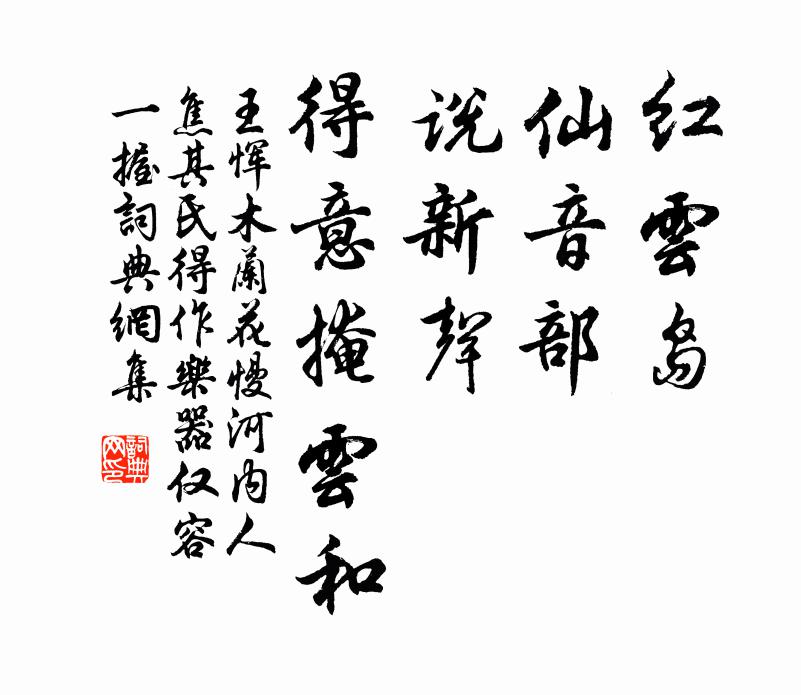 红雲岛
仙音部
说新聲
得意掩雲和
王恽木蘭花慢河内人
焦其氏得作樂器仅容
一握詞典網集
詞典网印